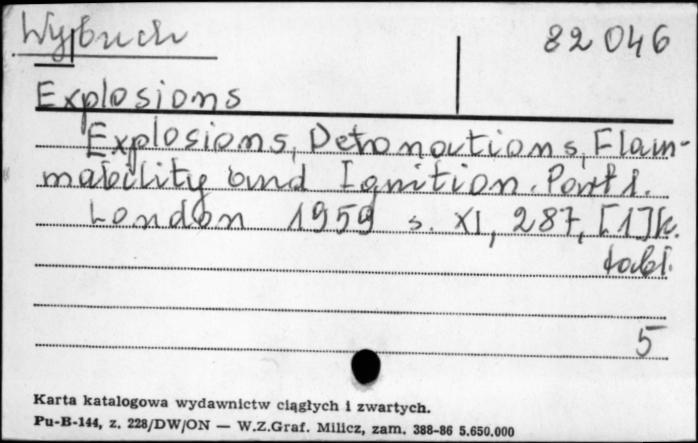 Wybuch
82 046
Explosions
Explosions, Detonations, Flam-
mability and Ignition. Part 1.
London 1959 s. XI, 287, [1] k.
tabl.
5
Karta katalogowa wydawnictw ciągłych i zwartych.
Pu-B-144, z. 228/DW/ON — W.Z.Graf. Milicz, zam. 388-86 5.650.000